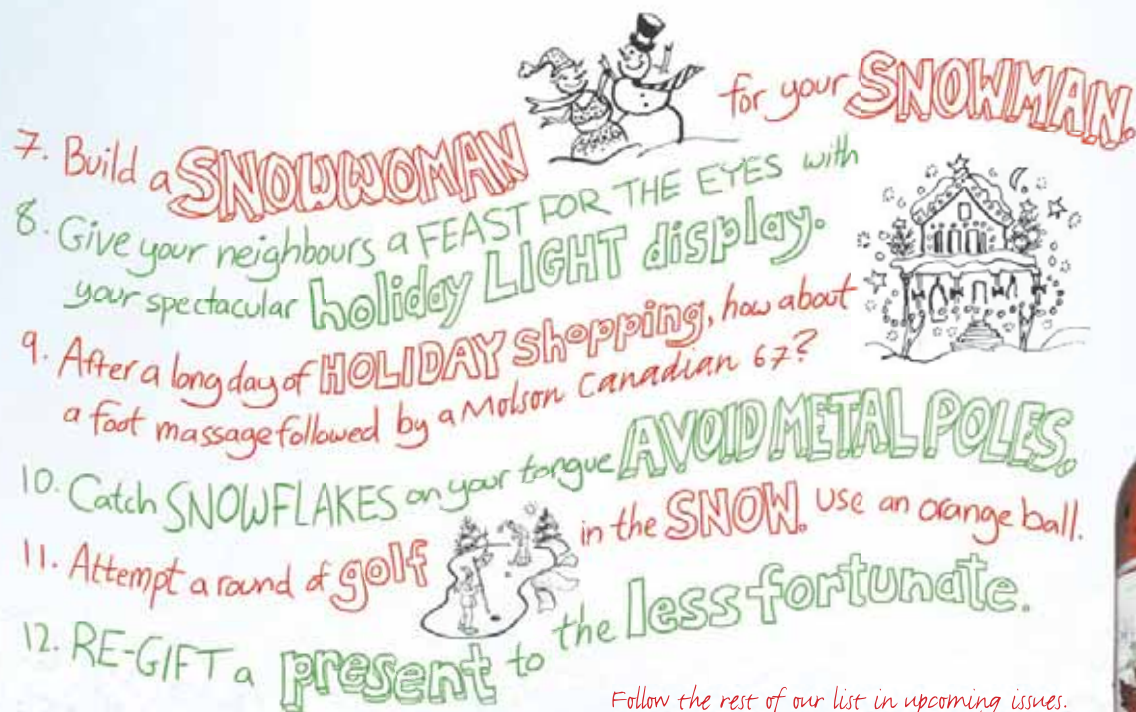 7. Build a SNOWWOMAN for your SNOWMAN.
8. Give your neighbours a FEAST FOR THE EYES with
your spectacular holiday LIGHT display.
9. After a long day of HOLIDAY shopping, how about
a foot massage followed by a Molson Canadian 67?
10. Catch SNOWFLAKES on your tongue AVOID METAL POLES.
11. Attempt a round of golf in the SNOW. Use an orange ball.
12. RE-GIFT a present to the less fortunate.
Follow the rest of our list in upcoming issues.